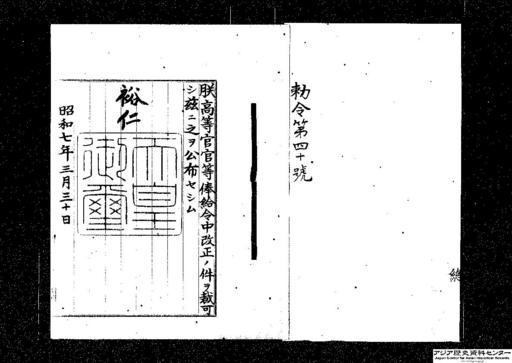 勅令第四十號
朕高等官官等俸給令中改正ノ件ヲ裁可
シ茲ニ之ヲ公布セシム
裕仁
天皇御璽
昭和七年三月三十日
アジア歴史資料センター
Japan Center for Asian Historical Records